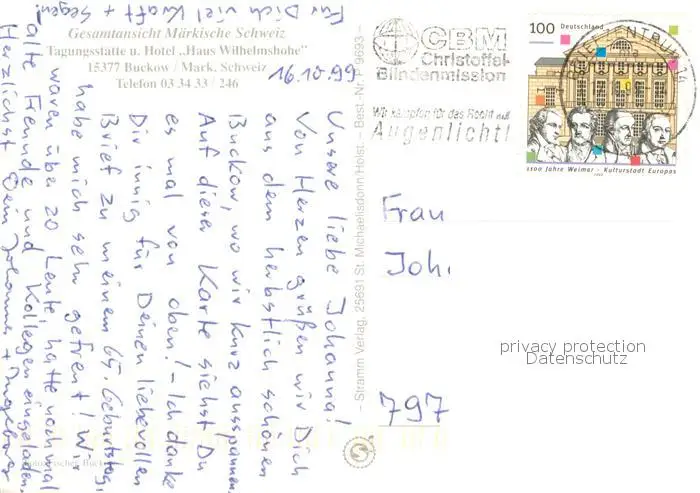 Gesamtansicht Märkische Schweiz
Tagungsstätte u. Hotel „Haus Wilhelmshöhe"
15377 Buckow / Märk. Schweiz
Telefon 03 34 33 / 246
16.10.99
Unsere liebe Johanna!
Von Herzen grüßen wir Dich
aus dem herbstlich schönen
Buckow, wo wir kurz ausspannen.
Auf dieser Karte siehst Du
es mal von oben! – Ich danke
Dir innig für Deinen liebevollen
Brief zu meinem 65. Geburtstag,
habe mich sehr gefreut! Wir
waren über 20 Leute, hatte noch mal
alte Freunde und Kollegen eingeladen.
Herzlichst Dein Johannes + Ingeborg
Für Dich viel Kraft + Segen!
– Stramm Verlag, 25691 St. Michaelisdonn/Holst. – Best. Nr. 9693 –
CBM
Christoffel-
Blindenmission
Wir kämpfen für das Recht auf
Augenlicht!
100 Deutschland
1100 Jahre Weimar - Kulturstadt Europas
1999
Frau
Joh
797
privacy protection
Datenschutz